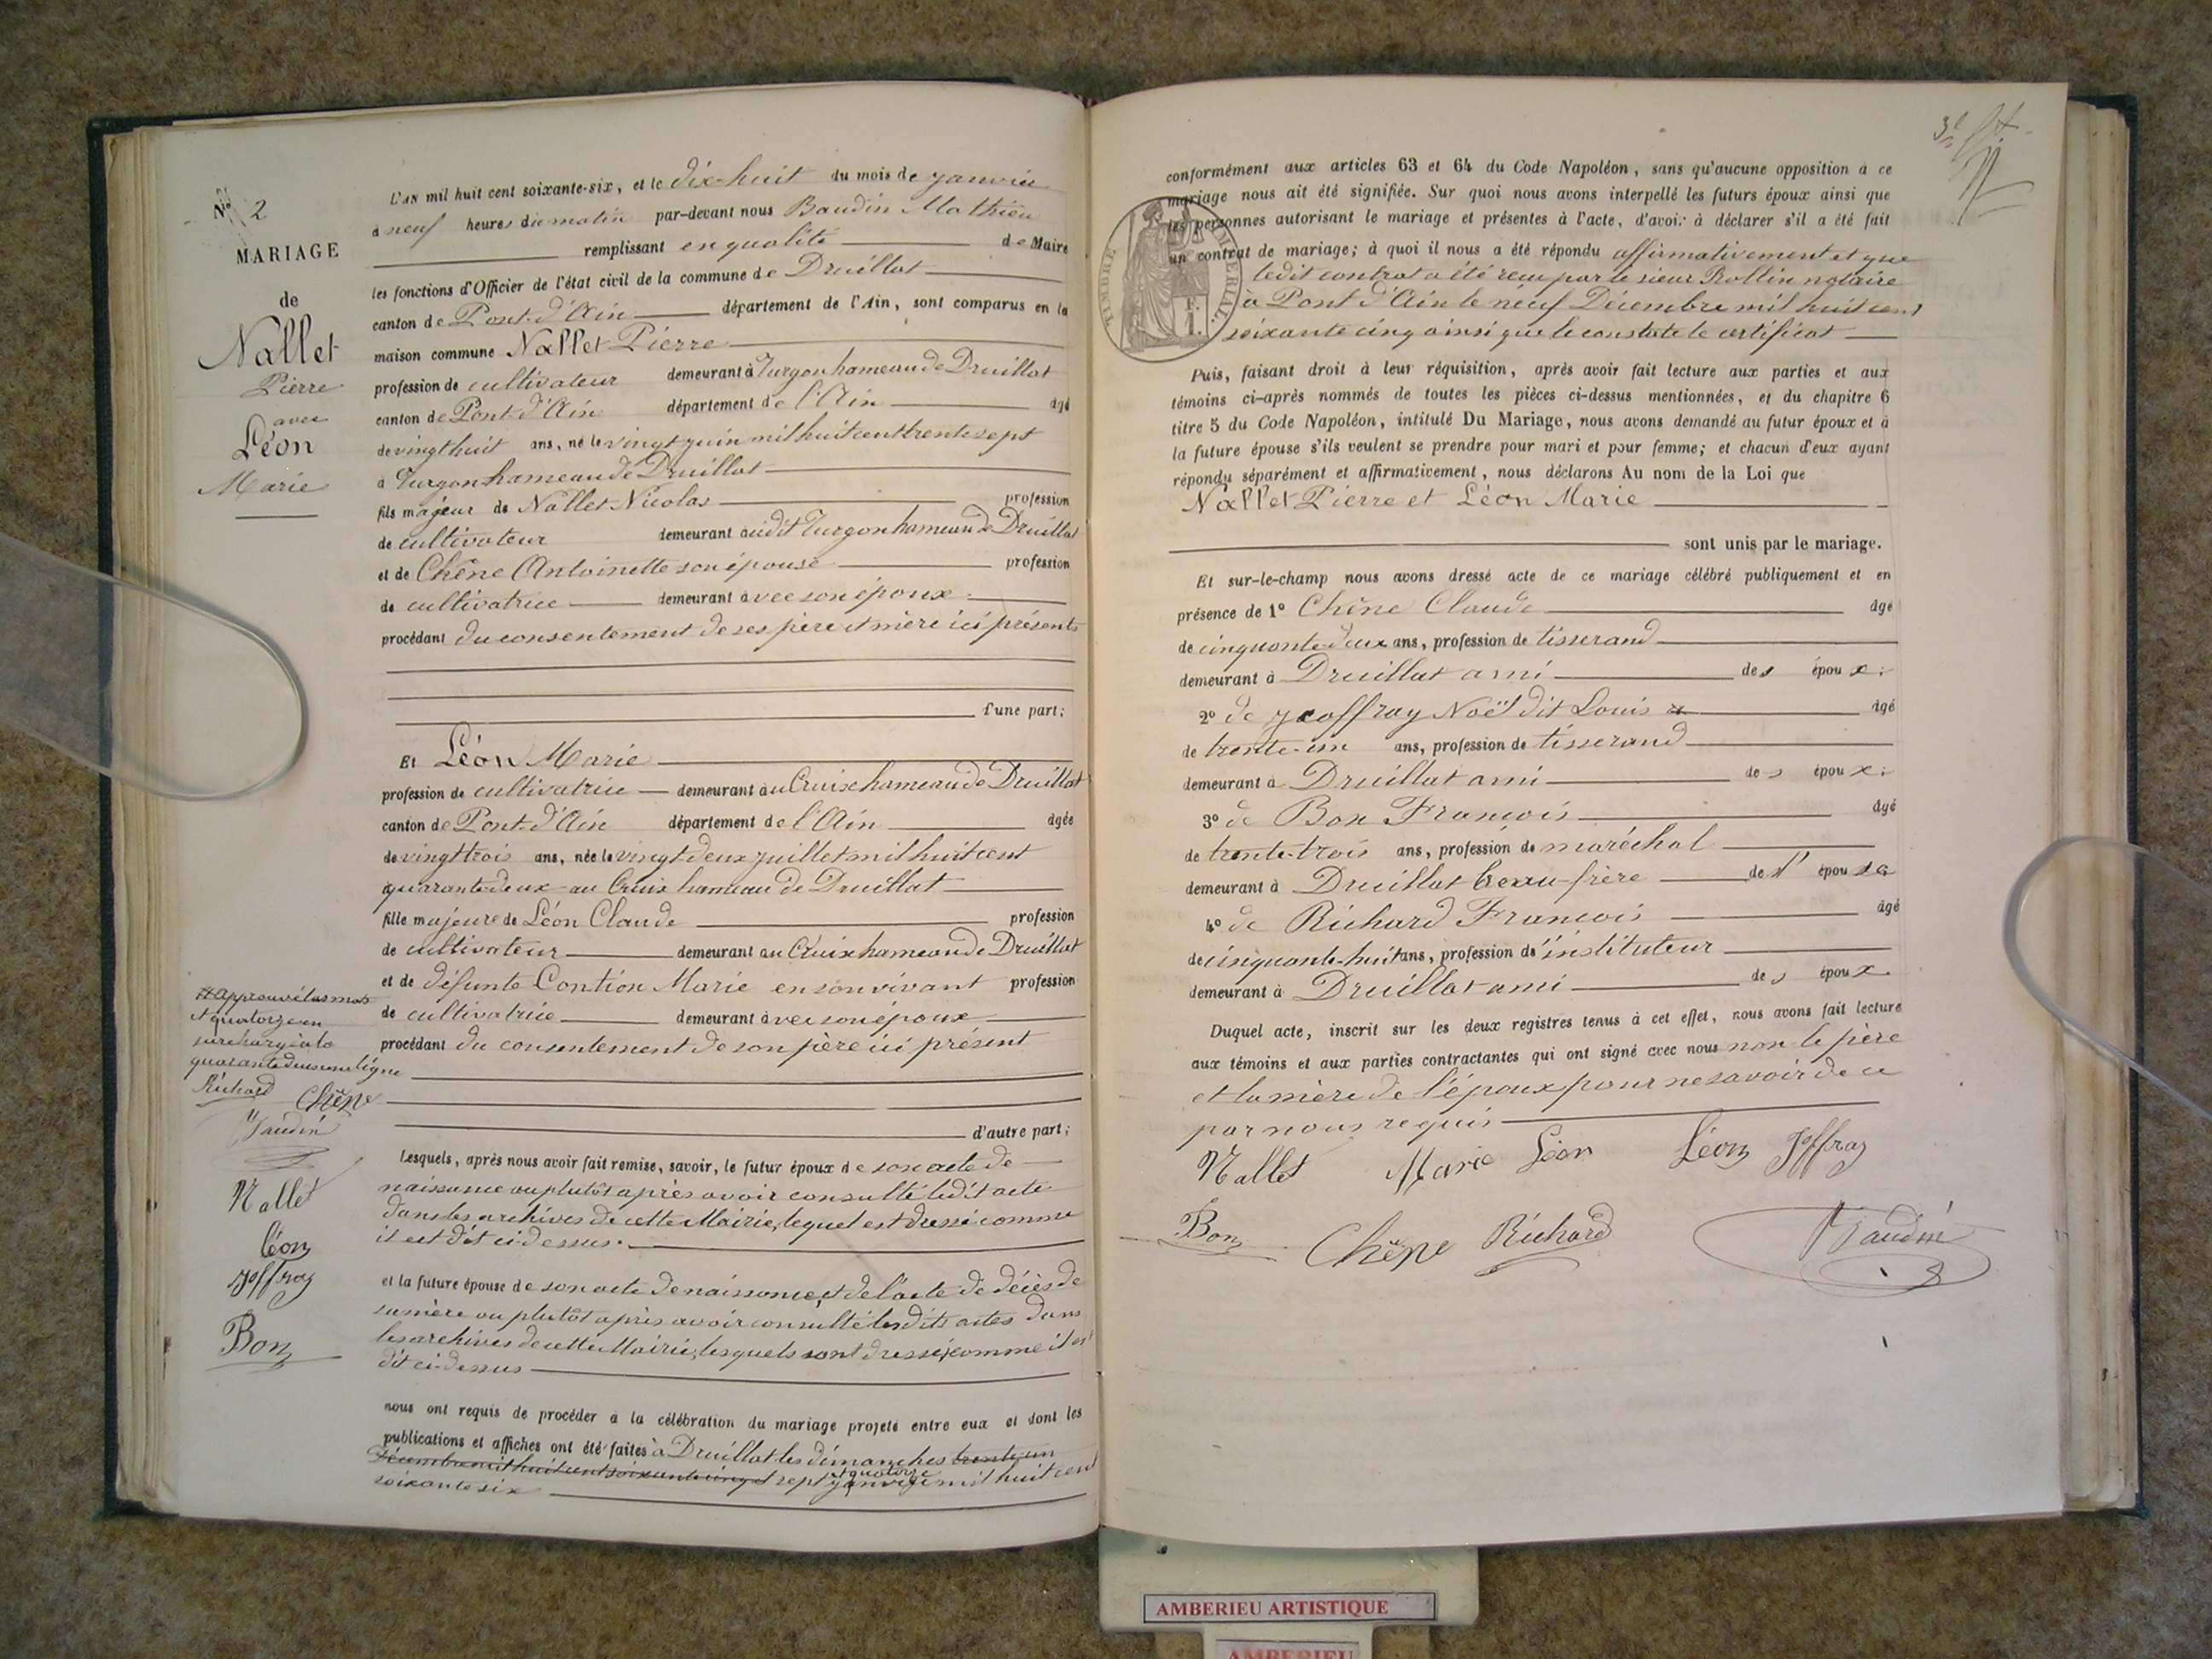 Nº 2
MARIAGE
de
Nallet
Pierre
avec
Léon
Marie
L'AN mil huit cent soixante-six, et le dix-huit du mois de janvier
à neuf heures du matin par-devant nous Baudin Mathieu
remplissant en qualité de Maire
les fonctions d'Officier de l'état civil de la commune de Druillat
canton de Pont-d'Ain département de l'Ain, sont comparus en la
maison commune Nallet Pierre
profession de cultivateur demeurant à Turgon hameau de Druillat
canton de Pont-d'Ain département de l'Ain âgé
de vingt huit ans, né le vingt juin mil huit cent trente sept
à Turgon hameau de Druillat
fils majeur de Nallet Nicolas profession
de cultivateur demeurant audit Turgon hameau de Druillat
et de Chêne Antoinette son épouse profession
de cultivatrice demeurant avec son époux
procédant du consentement de ses père et mère ici présents
d'une part;
Et Léon Marie
profession de cultivatrice demeurant au Cruix hameau de Druillat
canton de Pont-d'Ain département de l'Ain âgée
de vingt trois ans, née le vingt deux juillet mil huit cent
quarante-deux au Cruix hameau de Druillat
fille majeure de Léon Claude profession
de cultivateur demeurant au Cruix hameau de Druillat
et de défunte Contion Marie en son vivant profession
de cultivatrice demeurant avec son époux
procédant du consentement de son père ici présent
d'autre part;
Lesquels, après nous avoir fait remise, savoir, le futur époux de son acte de
naissance ou plutôt après avoir consulté ledit acte
dans les archives de cette Mairie, lequel est dressé comme
il est dit ci-dessus.
et la future épouse de son acte de naissance, et de l'acte de décès de
sa mère ou plutôt après avoir consulté lesdits actes dans
les archives de cette Mairie, lesquels sont dressés comme il est
dit ci-dessus
nous ont requis de procéder à la célébration du mariage projeté entre eux et dont les
publications et affiches ont été faites à Druillat les dimanches trente-un
Décembre mil huit cent soixante cinq et sept et quatorze janvier mil huit cent
soixante six
approuvé les mots
et quatorze en
surcharge à la
quarante deuxième ligne
Richard Chêne
Baudin
Nallet
Léon
Joffray
Bon
conformément aux articles 63 et 64 du Code Napoléon, sans qu'aucune opposition à ce
mariage nous ait été signifiée. Sur quoi nous avons interpellé les futurs époux ainsi que
les personnes autorisant le mariage et présentes à l'acte, d'avoir à déclarer s'il a été fait
un contrat de mariage; à quoi il nous a été répondu affirmativement et que
ledit contrat a été reçu par le sieur Rollin notaire
à Pont d'Ain le neuf Décembre mil huit cent
soixante cinq ainsi que le constate le certificat
TIMBRE IMPERIAL
1 F.
Puis, faisant droit à leur réquisition, après avoir fait lecture aux parties et aux
témoins ci-après nommés de toutes les pièces ci-dessus mentionnées, et du chapitre 6
titre 5 du Code Napoléon, intitulé Du Mariage, nous avons demandé au futur époux et à
la future épouse s'ils veulent se prendre pour mari et pour femme; et chacun d'eux ayant
répondu séparément et affirmativement, nous déclarons Au nom de la Loi que
Nallet Pierre et Léon Marie
sont unis par le mariage.
Et sur-le-champ nous avons dressé acte de ce mariage célébré publiquement et en
présence de 1º Chêne Claude âgé
de cinquante-deux ans, profession de tisserand
demeurant à Druillat ami des époux.
2º de Jeoffray Noël dit Louis âgé
de trente-un ans, profession de tisserand
demeurant à Druillat ami des époux.
3º de Bon François âgé
de trente-trois ans, profession de maréchal
demeurant à Druillat beau-frère de l'épouse
4º de Richard François âgé
de cinquante-huit ans, profession d'instituteur
demeurant à Druillat ami des époux
Duquel acte, inscrit sur les deux registres tenus à cet effet, nous avons fait lecture
aux témoins et aux parties contractantes qui ont signé avec nous non le père
et la mère de l'époux pour ne savoir de ce
par nous requis
Nallet Marie Léon Léon Joffray
Bon Chêne Richard Baudin
AMBERIEU ARTISTIQUE
AMBERIEU